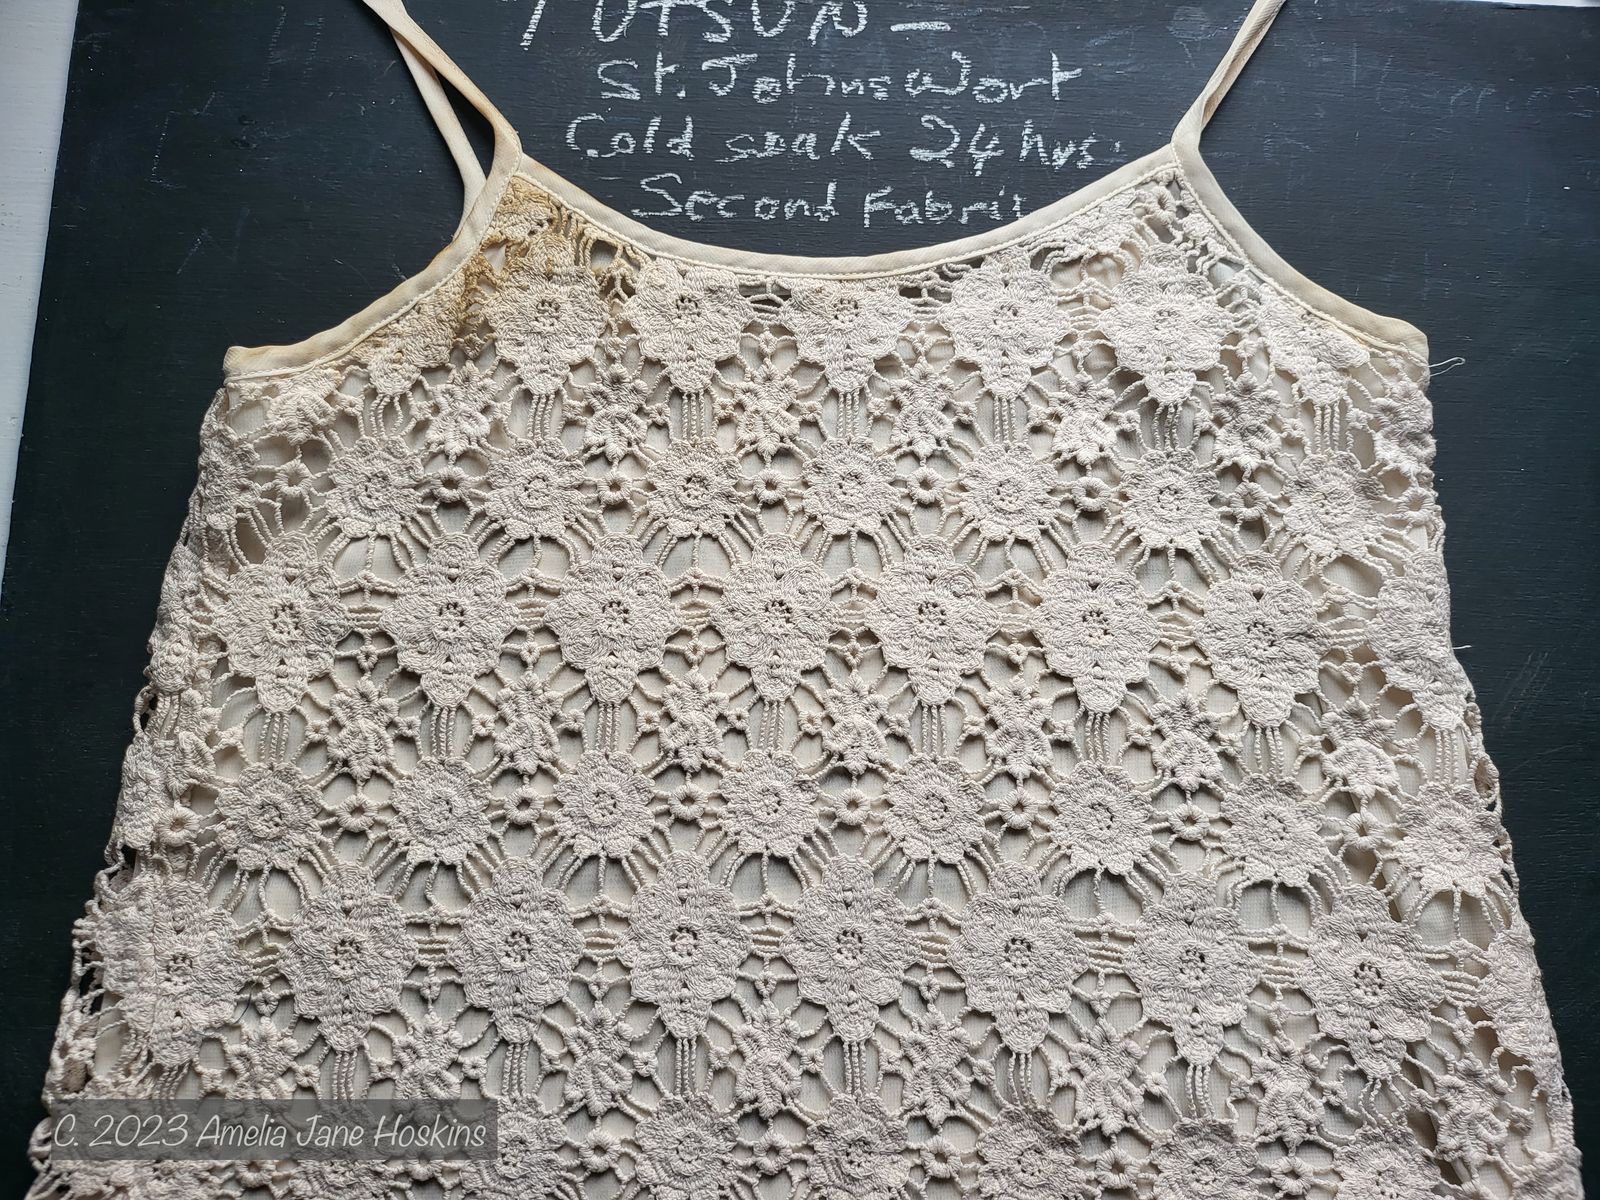 TUTSUN –
St. Johns Wort
Cold soak 24 hrs.
Second Fabric
C. 2023 Amelia Jane Hoskins